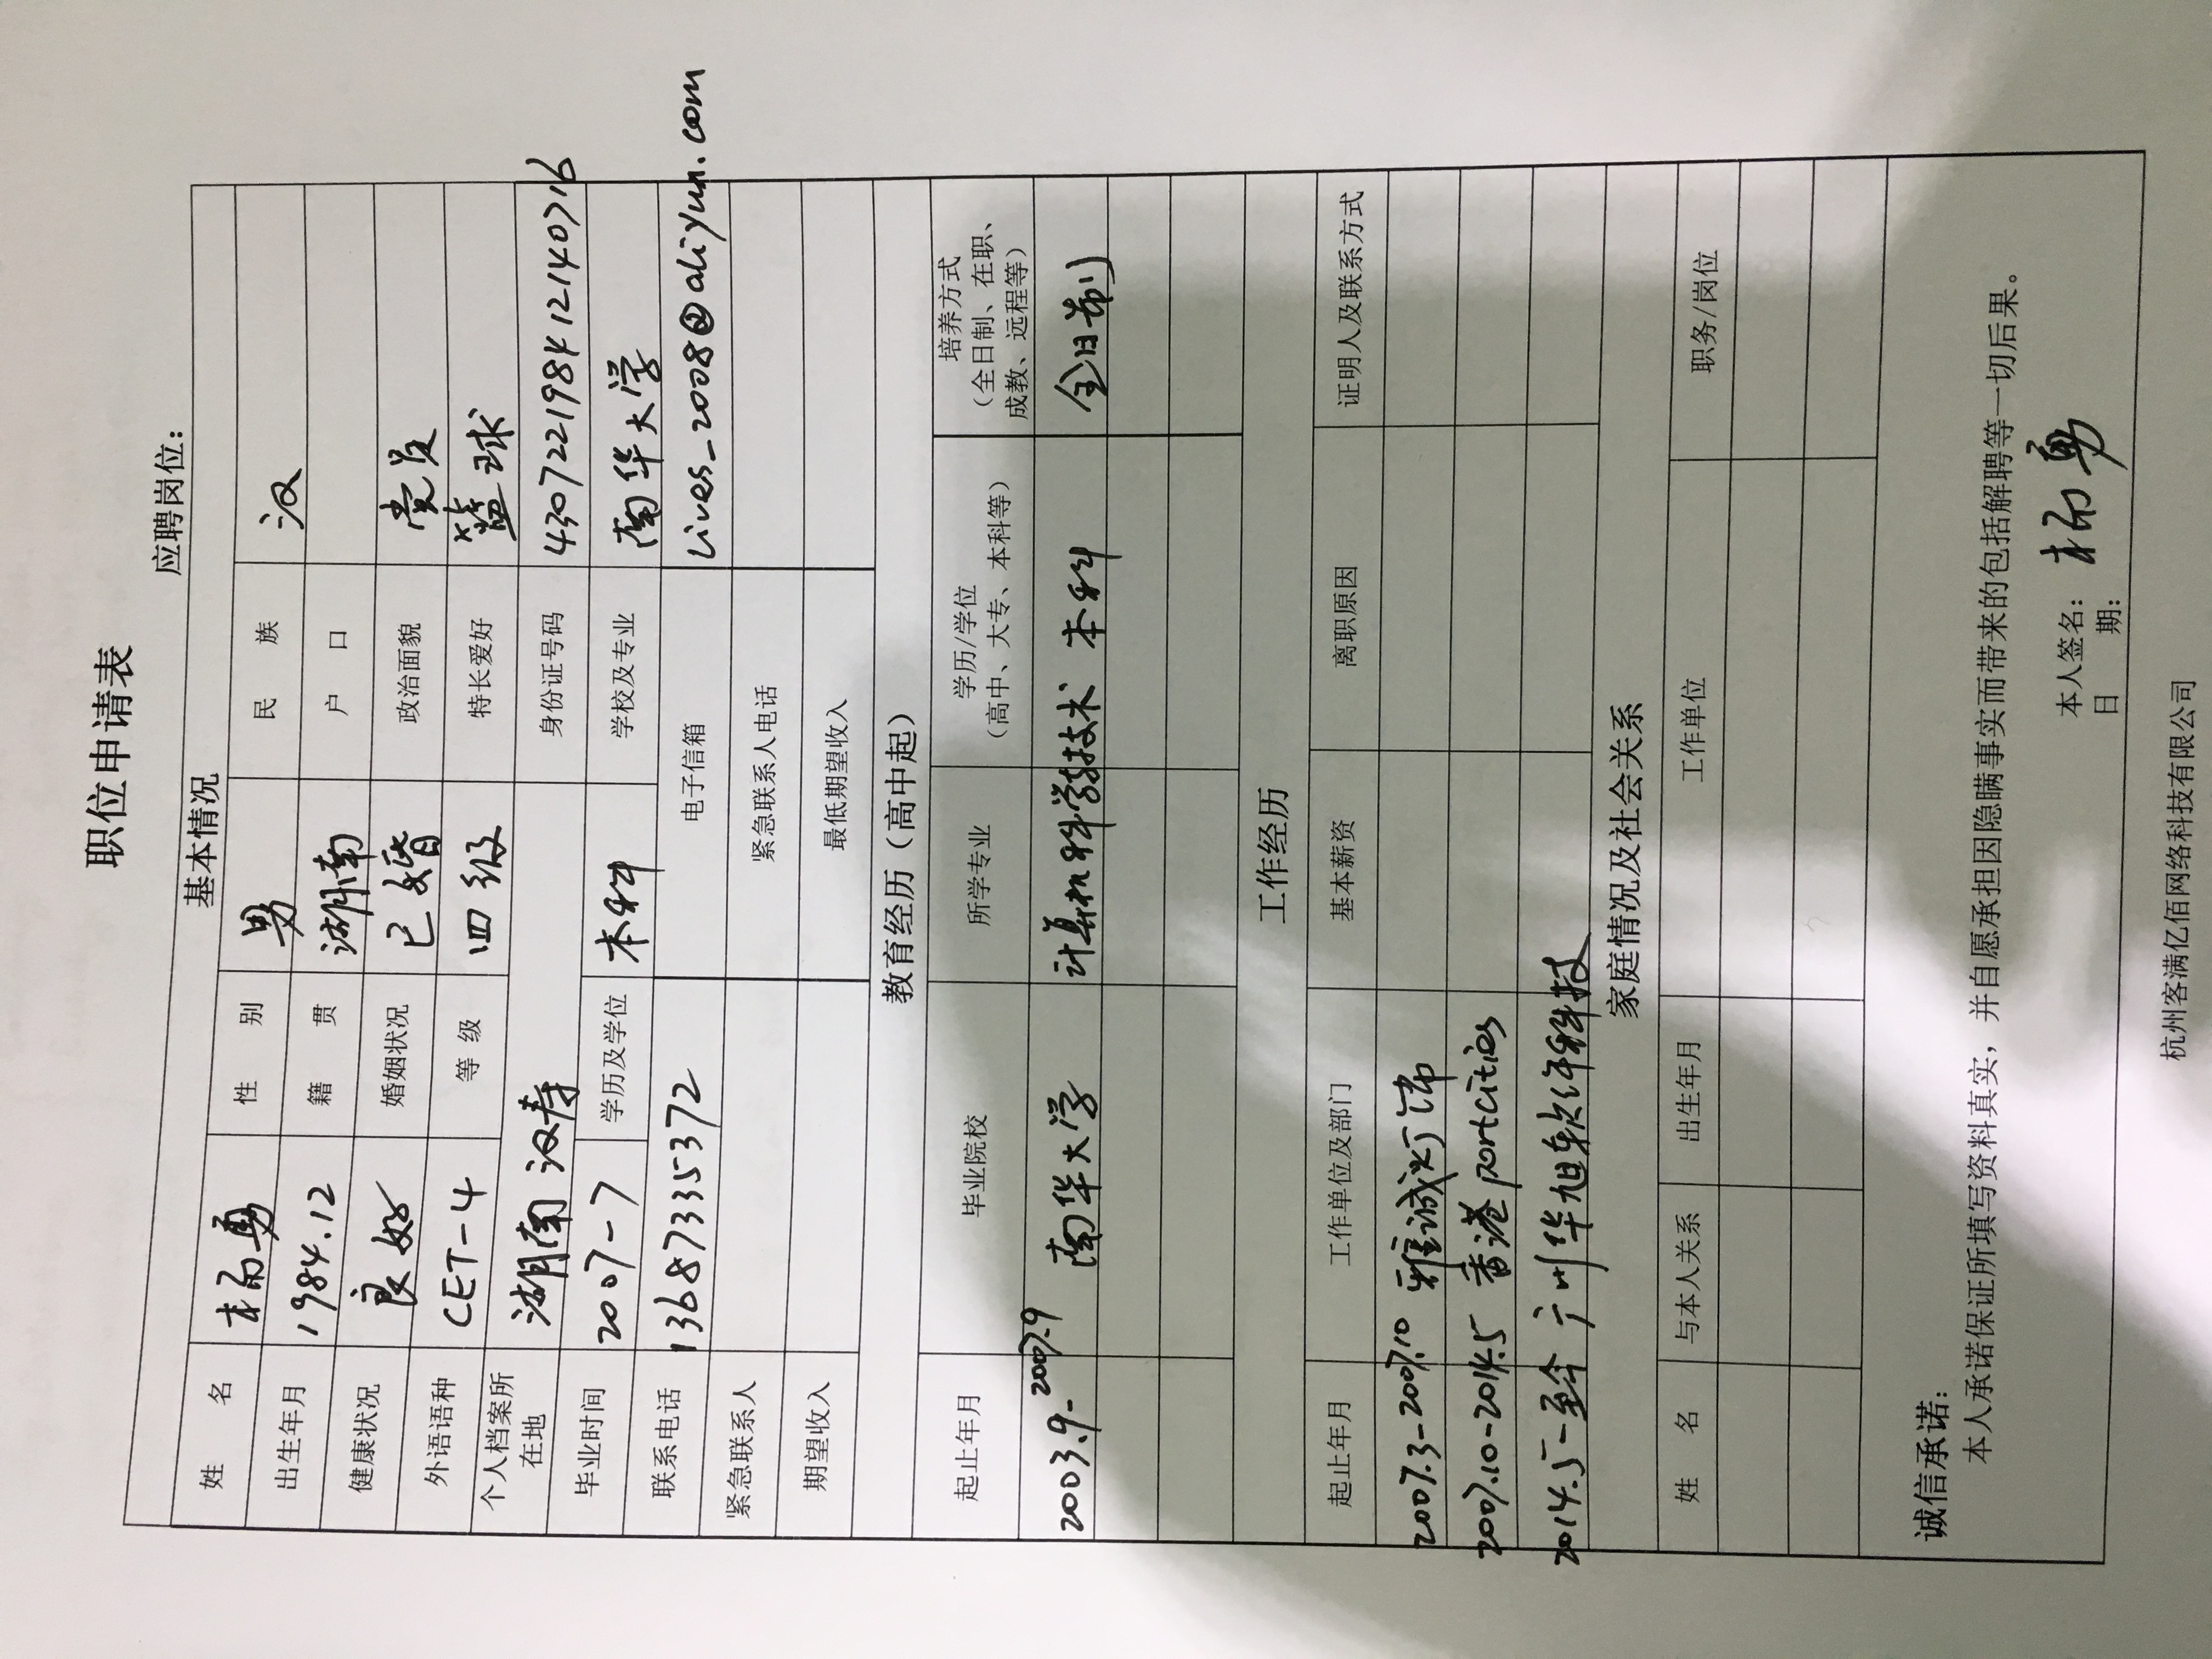 职位申请表
应聘岗位：
基本情况
姓 名 杨勇 性 别 男 民 族 汉
出生年月 1984.12 籍 贯 湖南 户 口
健康状况 良好 婚姻状况 已婚 政治面貌 党员
外语语种 CET-4 等 级 四级 特长爱好 篮球
个人档案所在地 湖南 汉寿 身份证号码 430722198412140716
毕业时间 2007-7 学历及学位 本科 学校及专业 南华大学
联系电话 13687335372 电子信箱 Lives_2008@aliyun.com
紧急联系人 紧急联系人电话
期望收入 最低期望收入
教育经历（高中起）
起止年月 毕业院校 所学专业 学历/学位（高中、大专、本科等） 培养方式（全日制、在职、成教、远程等）
2003.9-2007.9 南华大学 计算机科学技术 本科 全日制
工作经历
起止年月 工作单位及部门 基本薪资 离职原因 证明人及联系方式
2007.3-2007.10 雅诚灯饰
2007.10-2014.5 香港 portcities
2014.5-至今 广州华旭软件科技
家庭情况及社会关系
姓 名 与本人关系 出生年月 工作单位 职务/岗位
诚信承诺：
本人承诺保证所填写资料真实，并自愿承担因隐瞒事实而带来的包括解聘等一切后果。
本人签名： 杨勇
日 期：
杭州客满亿佰网络科技有限公司